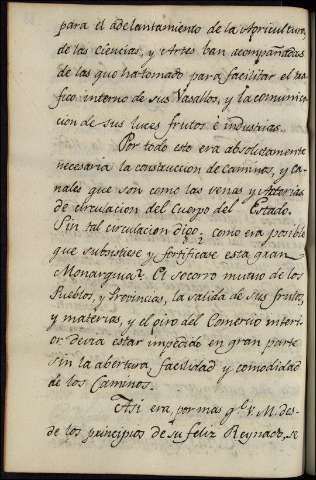 para el adelantamiento de la Agricultura,
de las Ciencias, y Artes ban acompañadas
de las que ha tomado para facilitar el tra
fico interno de sus Vasallos, y la comunica
cion de sus luces frutos è industrias.
Por todo esto era absolutamente
necesaria la construccion de Caminos, y Ca-
nales que son como las venas y Arterias
de circulacion del Cuerpo del Estado.
Sin tal circulacion digo: como era posible
que subsistiese y fortificase esta gran
Monarquia? El socorro mutuo de los
Pueblos, y Provincias, la salida de sus frutos,
y materias, y el giro del Comercio interi-
or devia estar impedido en gran parte
sin la abertura, facilidad y comodidad
de los Caminos.
Asi era, por mas qe. V. M. des-
de los principios de su feliz Reynado, se